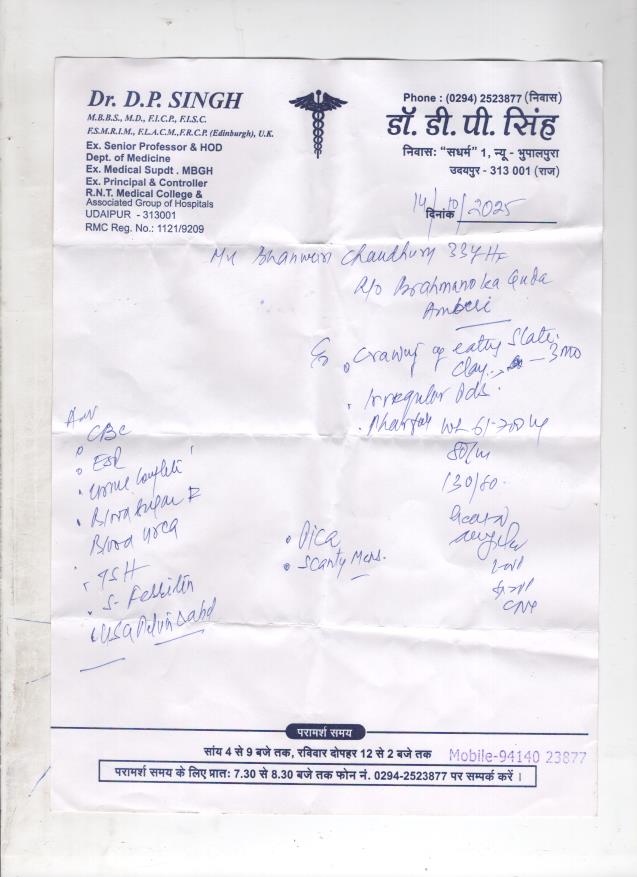 Dr. D.P. SINGH
M.B.B.S., M.D., F.I.C.P., F.I.S.C.
F.S.M.R.I.M., F.L.A.C.M., F.R.C.P. (Edinburgh), U.K.
Ex. Senior Professor & HOD
Dept. of Medicine
Ex. Medical Supdt . MBGH
Ex. Principal & Controller
R.N.T. Medical College &
Associated Group of Hospitals
UDAIPUR - 313001
RMC Reg. No.: 1121/9209
Phone : (0294) 2523877 (निवास)
डॉ. डी. पी. सिंह
निवास: "सधर्म" 1, न्यू - भुपालपुरा
उदयपुर - 313 001 (राज)
दिनांक 14/10/2025
Bhanweri Chaudhury 33Y
R/o Brahmano ka Guda
Amberi
Craving of eating Slate
Clay - 3 mo
Irregular
Wt 61.700 kg
80/m
130/80
CBC
ESR
Urine Complete
Blood Sugar R
Blood Urea
TSH
S. Ferritin
USG Pelvis abd
Pica
Scanty Mens.
CNS
परामर्श समय
सांय 4 से 9 बजे तक, रविवार दोपहर 12 से 2 बजे तक
Mobile-94140 23877
परामर्श समय के लिए प्रात: 7.30 से 8.30 बजे तक फोन नं. 0294-2523877 पर सम्पर्क करें ।